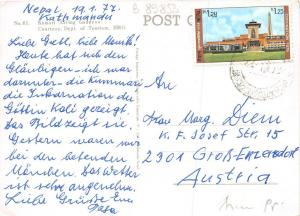 Nepal, 19.1.77.
Kathmandu
No. 81. Kumari (Living Goddess)
Courtesy, Dept. of Tourism, HMG.
POST C
Liebe Gretl, liebe Monik!
Heute hat sich den
Gläubigen – ich war
darunter – die Kummari
An die Inkarnation der
Göttin Kali gezeigt.
Das Bild zeigt sie.
Gestern waren wir
bei den betenden
Mönchen. Das Wetter
ist sehr angenehm.
Liebe Grüße Eure
1.25
1.25
Frau Marg. Diem
K. F. Josef Str. 15
2301 Groß Enzersdorf
Austria